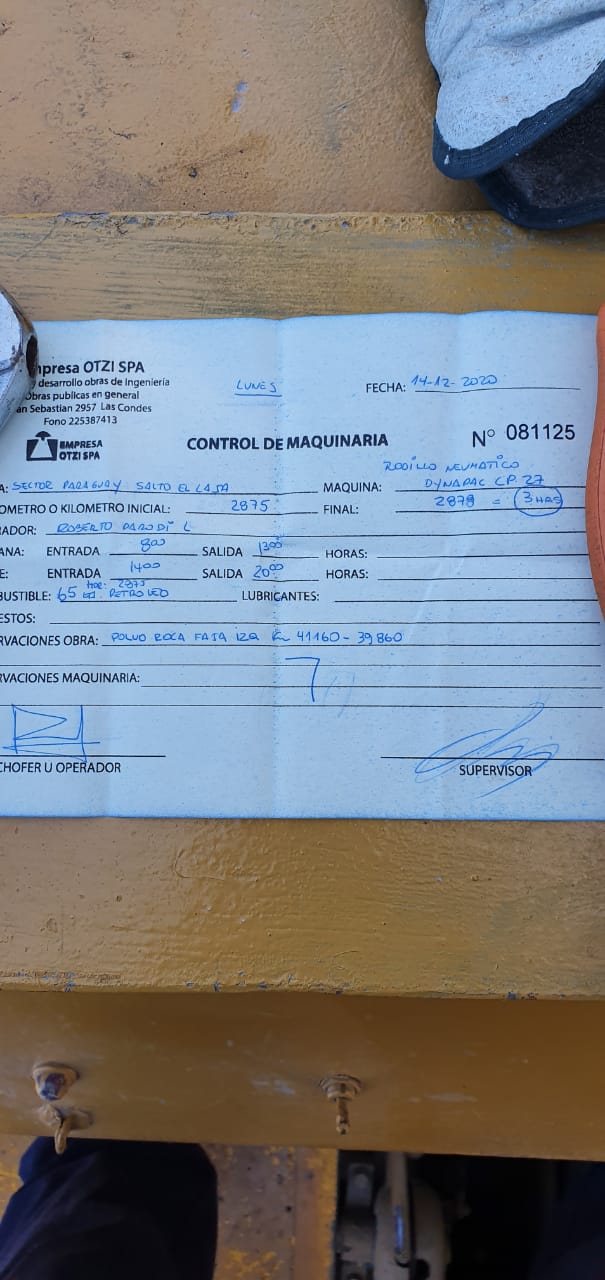 mpresa OTZI SPA
desarrollo obras de Ingeniería
Obras publicas en general
an Sebastian 2957 Las Condes
Fono 225387413
EMPRESA
OTZI SPA
LUNES
FECHA: 14-12-2020
CONTROL DE MAQUINARIA
Nº 081125
RODILLO NEUMATICO
A: SECTOR PARAGUAY SALTO EL LAJA MAQUINA: DYNAPAC CP.27
OMETRO O KILOMETRO INICIAL: 2875 FINAL: 2878 = 3 HRS
RADOR: ROBERTO PARODI L
ANA: ENTRADA 800 SALIDA 1300 HORAS:
E: ENTRADA 1400 SALIDA 2000 HORAS:
2875
BUSTIBLE: 65 PETROLEO LUBRICANTES:
ESTOS:
RVACIONES OBRA: POLVO ROCA FAJA IZQ K 41160 - 39860
RVACIONES MAQUINARIA:
CHOFER U OPERADOR
SUPERVISOR